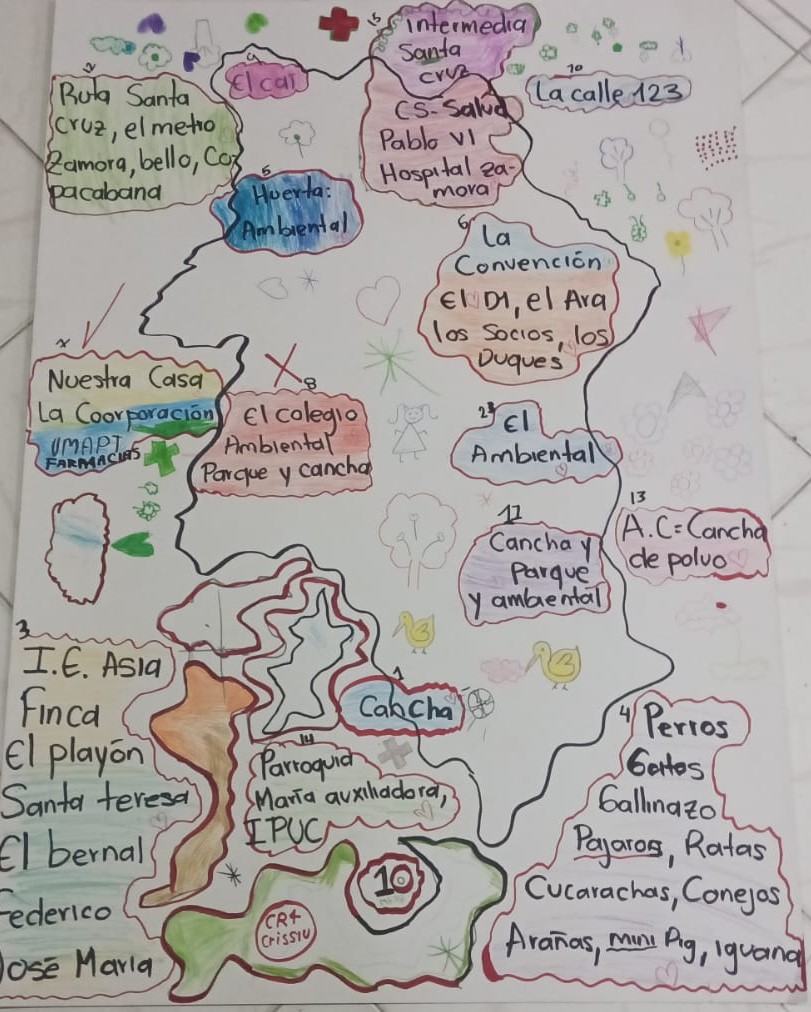 15
Intermedia
Santa
cruz
9
El cai
12
Ruta Santa
Cruz, el metro
Zamora, bello, Co-
pacabana
CS-Salud
Pablo VI
Hospital za-
mora
10
La calle 123
5
Huerta:
Ambiental
6
La
Convención
El D1, el Ara
los Socios, los
Duques
Nuestra Casa
La Coorporación
UMAPI
FARMACIAS
8
El colegio
Ambiental
Parque y cancha
23
El
Ambiental
11
Cancha y
Parque
y ambiental
13
A.C=Cancha
de polvo
3
I.E. Asia
Finca
El playón
Santa teresa
El bernal
Federico
José María
1
Cancha
14
Parroquia
María auxiliadora,
IPUC
4
Perros
Gatos
Gallinazo
Pajaros, Ratas
Cucarachas, Conejos
Arañas, mini Pig, iguana
10
CR4